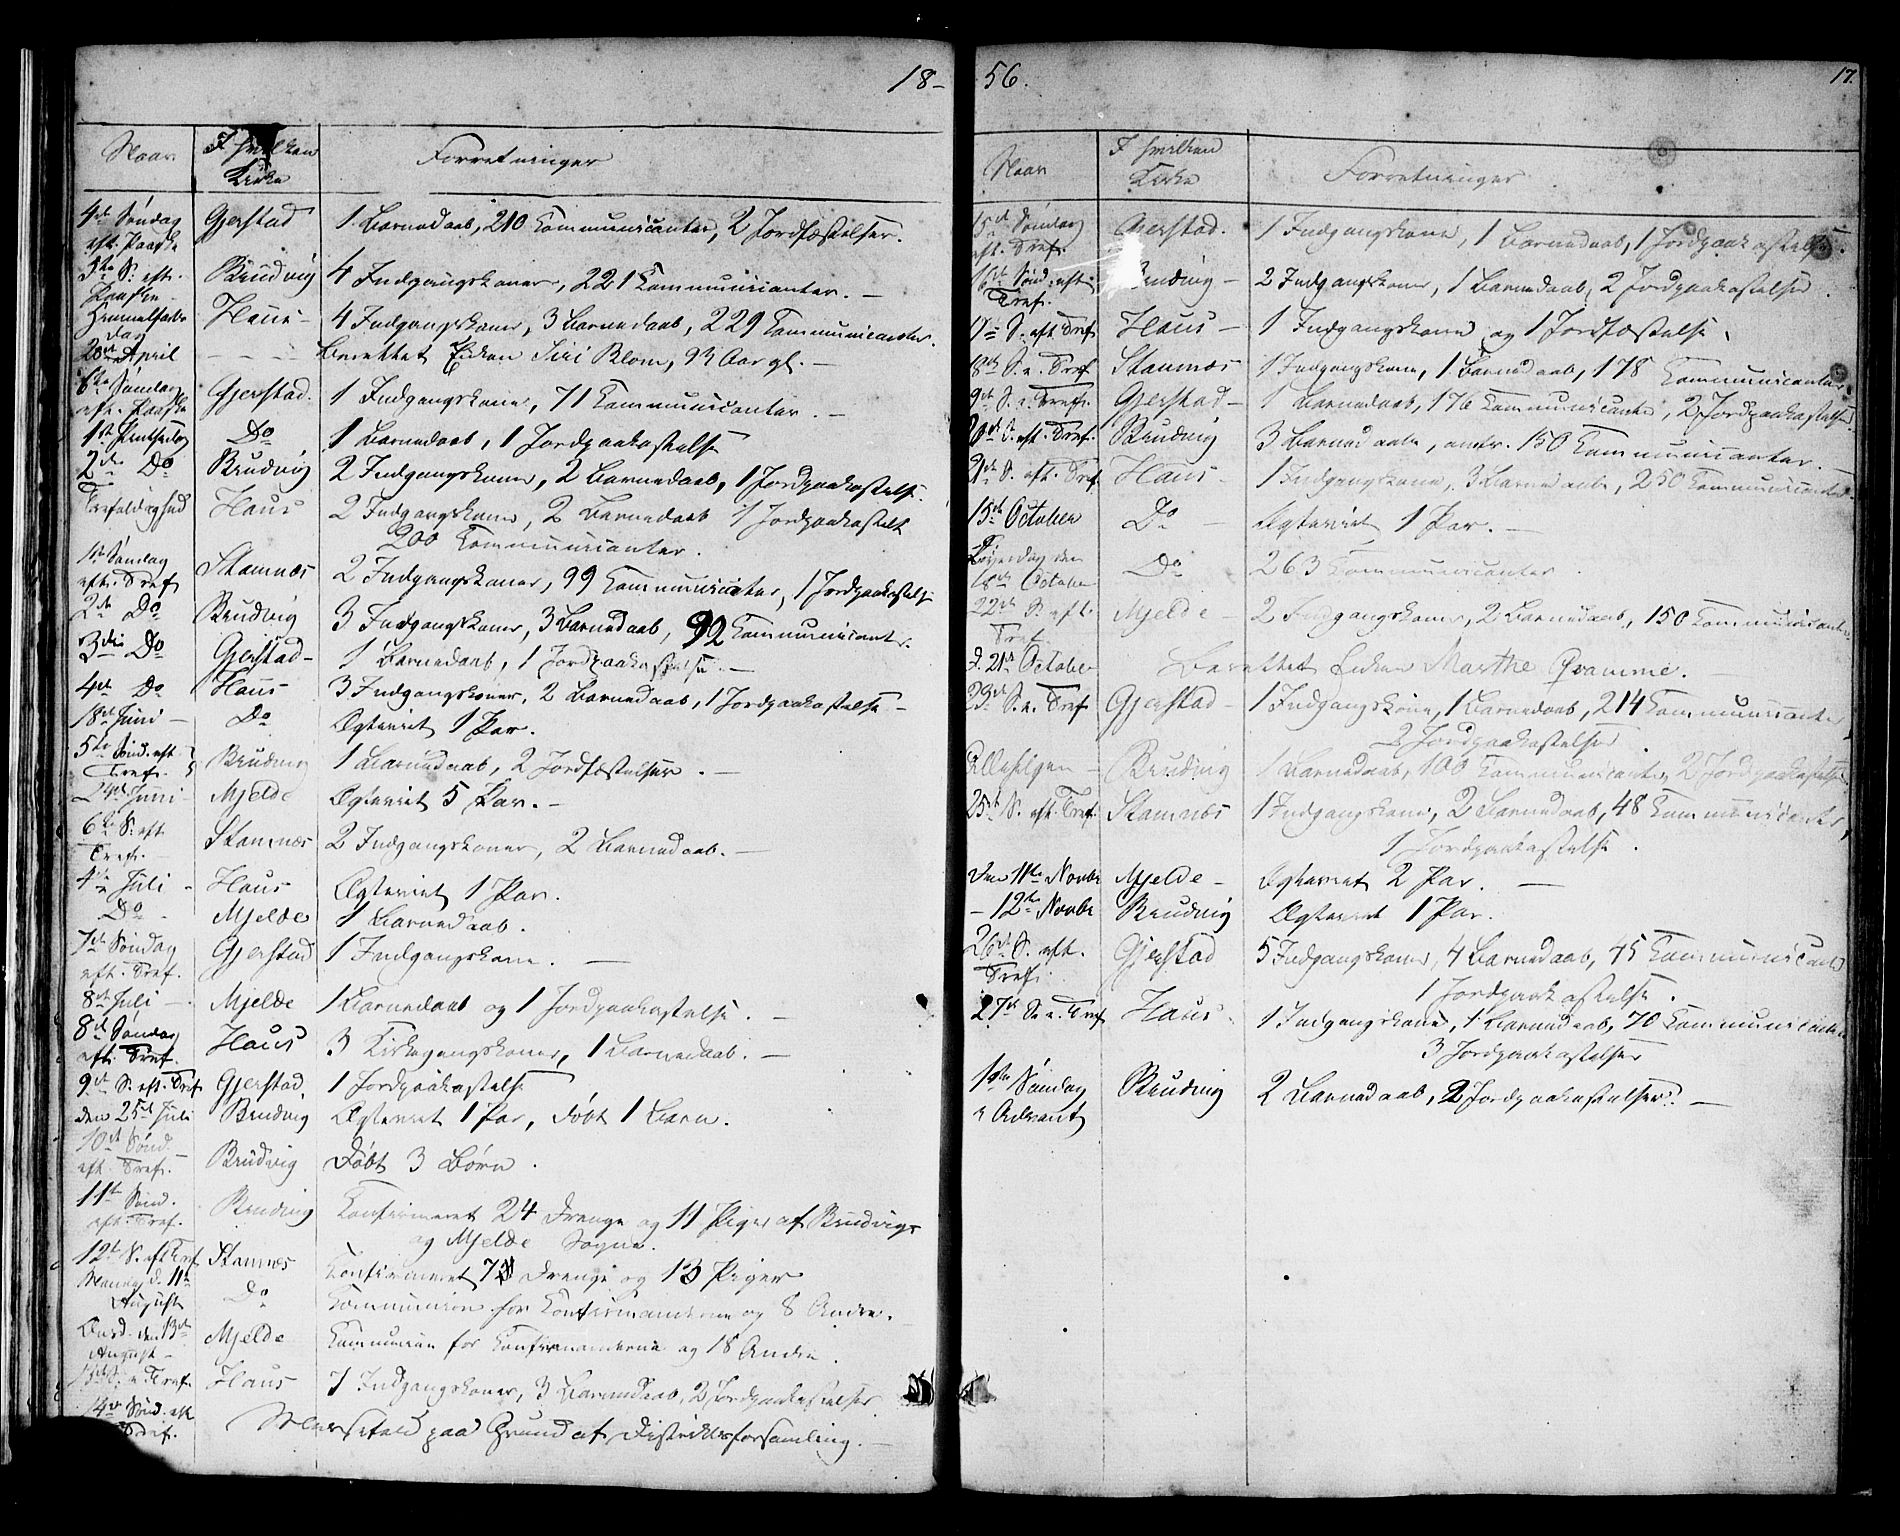 18-
Naar
I hvilken
Kirke
Forretninger
4de Søndag
eft. Paaske
Gjerstad
1 Barnedaab, 210 Communicanter, 2 Jordfæstelser.
5te S. eft.
Paaske
Brudvig
4 Indgangskoner, 221 Communicanter. —
Himmelfarts
dag
Haus -
4 Indgangskoner, 3 Barnedaab, 229 Communicanter.
April
Berettet Enken Siri Blom, 93 Aar gl. —
6te Søndag
eft. Paaske
Gjerstad.
1 Indgangskone, 71 Communicanter. —
1ste Pintsedag
Do
1 Barnedaab, 1 Jordpaakastelse
2den Do
Brudvig
2 Indgangskoner, 2 Barnedaab, 1 Jordpaakastelse.
Trefoldighed
Haus
2 Indgangskoner, 2 Barnedaab 1 Jordpaakastelse
200 Communicanter.
1ste Søndag
eft. Tref
Stamnæs
2 Indgangskoner, 99 Communicanter, 1 Jordpaakastelse
2de Do
Brudvig
3 Indgangskoner, 3 Barnedaab, 92 Communicanter.
3die Do
Gjerstad -
1 Barnedaab, 1 Jordpaakastelse. —
4de Do
Haus
3 Indgangskoner, 2 Barnedaab, 1 Jordpaakastelse -
18de Juni -
Do
Ægteviet 1 Par.
5te Sønd. eft
Tref.
Brudvig
1 Barnedaab, 2 Jordfæstelser. —
24de Juni -
Mjelde
Ægteviet 5 Par. -
6te S. eft
Tref. -
Stamnæs
2 Indgangskoner, 2 Barnedaab. —
4de Juli -
Haus
Ægteviet 1 Par.
Do -
Mjelde
1 Barnedaab.
7de Søndag
eft. Tref.
Gjerstad
1 Indgangskone. —
8de Juli -
Mjelde
1 Barnedaab og 1 Jordpaakastelse. —
8de Søndag
eft. Tref.
Haus
3 Kirkegangskoner, 1 Barnedaab. —
9de S. eft. Tref
Gjerstad.
1 Jordpaakastelse
den 25de Juli
Brudvig
Ægteviet 1 Par, døbt 1 Barn.
10de Sønd.
eft. Tref.
Brudvig
Døbt 3 Børn.
11te Sønd.
eft. Tref.
Brudvig
Confirmeret 24 Drenge og 11 Piger af Brudvigs
og Mjelde Sogne.
12te S. eft Tref
Stamnæs
Confirmeret Drenge og 13 Piger
Mandag d. 11te
August
Do
Communion for Confirmanderne og 8 Andre.
Onsd. den 13de
August -
Mjelde
Communion for Confirmanderne og 18 Andre.
S. e Tref.
Haus
7 Indgangskoner, 3 Barnedaab, 2 Jordpaakastelser
14de Sønd. eft
Tref.
Messefald paa Grund af Distriktsforsamling. —
56.
17.
Naar
I hvilken
Kirke
Forretninger
15de Søndag
eft. Tref.
Gjerstad.
1 Indgangskone, 1 Barnedaab, 1 Jordpaakastelse.
16de Sønd. eft
Tref.
Brudvig -
2 Indgangskoner, 1 Barnedaab, 2 Jordpaakastelser
17de S. eft Tref
Haus -
1 Indgangskone og 1 Jordfæstelse.
18de S. e. Tref
Stamnæs
1 Indgangskone, 1 Barnedaab, 178 Communicanter.
9de S. e. Tref.
Gjerstad -
1 Barnedaab, 176 Communicanter, 2 Jordpaakastelser.
S. eft. Tref.
Brudvig
3 Barnedaab, omtr. 150 Communicanter. —
S. eft. Tref
Haus -
1 Indgangskone, 3 Barnedaab, 250 Communicanter.
15de October
Do -
Ægteviet 1 Par. —
Løverdag den
18de October
Do
263 Communicanter.
22de S. eft.
Tref.
Mjelde -
2 Indgangskoner, 2 Barnedaab, 150 Communicanter.
d. 21de October
Berettet Enken Marthe Qvamme. —
23de S. e. Tref
Gjerstad -
1 Indgangskone, 1 Barnedaab, 214 Communicanter
2 Jordpaakastelser.
Allehelgen -
Brudvig
1 Barnedaab, 100 Communicanter, 2 Jordpaakastelser
25de S. eft. Tref.
Stamnæs
1 Indgangskone, 2 Barnedaab, 48 Communicanter,
1 Jordpaakastelse.
Den 11te Novbr
Mjelde -
Ægteviet 2 Par. —
- 12te Novbr
Brudvig
Ægteviet 1 Par.
26de S. eft.
Tref.
Gjerstad
5 Indgangskoner, 4 Barnedaab, 45 Communicanter
1 Jordpaakastelse.
27de S. e. Tref
Haus
1 Indgangskone, 1 Barnedaab, 70 Communicanter
3 Jordpaakastelser
1ste Søndag
i Advent
Brudvig
2 Barnedaab, 2 Jordpaakastelser. —